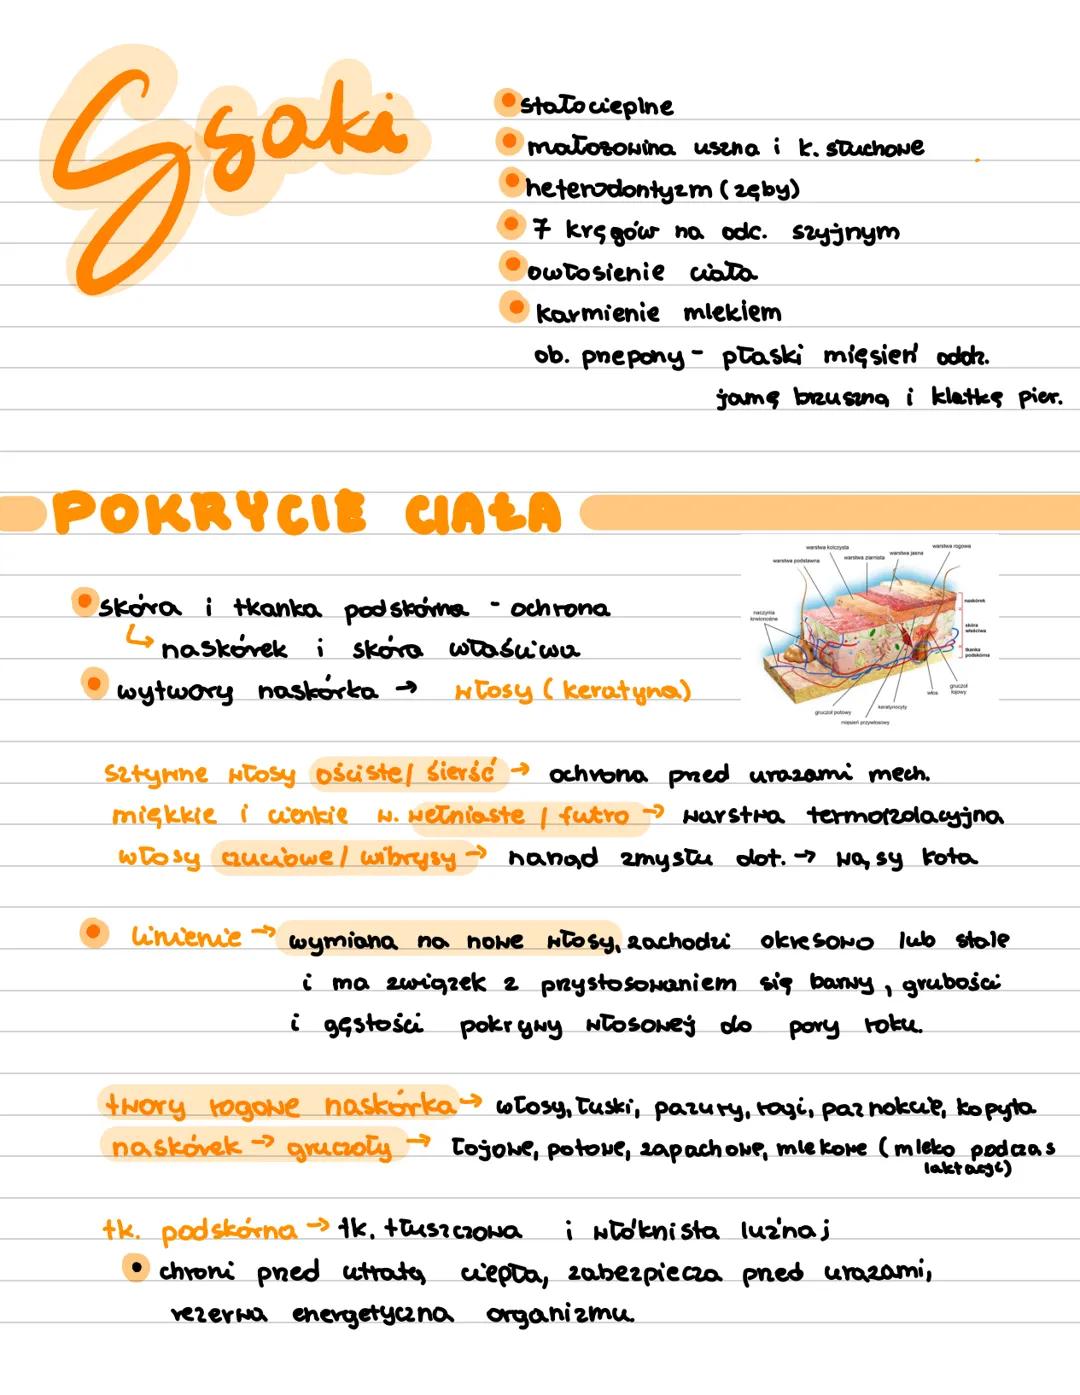 Ssaki
stałocieplne
małżowina uszna i k. słuchowe
heterodontyzm (zęby)
7 kręgów na odc. szyjnym
owłosienie ciała
karmienie mlekiem
ob. przepony - płaski mięsień oddz.
jamę brzuszną i klatkę pier.
POKRYCIE CIAŁA
skóra i tkanka podskórna - ochrona
↳ naskórek i skóra właściwa
wytwory naskórka → włosy (keratyna)
warstwa kolczysta
warstwa rogowa
warstwa jasna
warstwa ziarnista
warstwa podstawna
naskórek
naczynia krwionośne
skóra właściwa
tkanka podskórna
gruczoł łojowy
włos
keratynocyty
gruczoł potowy
mięsień przywłosowy
sztywne włosy ościste/ sierść → ochrona przed urazami mech.
miękkie i cienkie w. wełniaste / futro → warstwa termoizolacyjna
włosy czuciowe/ wibrysy → narząd zmysłu dot. → wąsy kota
linienie → wymiana na nowe włosy, zachodzi okresowo lub stale
i ma związek z przystosowaniem się barwy, grubości
i gęstości pokrywy włosowej do pory roku.
twory rogowe naskórka → włosy, łuski, pazury, rogi, paznokcie, kopyta
naskórek → gruczoły → łojowe, potowe, zapachowe, mlekowe (mleko podczas
laktacji)
tk. podskórna → tk. tłuszczowa i włóknista luźnaj
chroni przed utratą ciepła, zabezpiecza przed urazami,
rezerwa energetyczna organizmu.